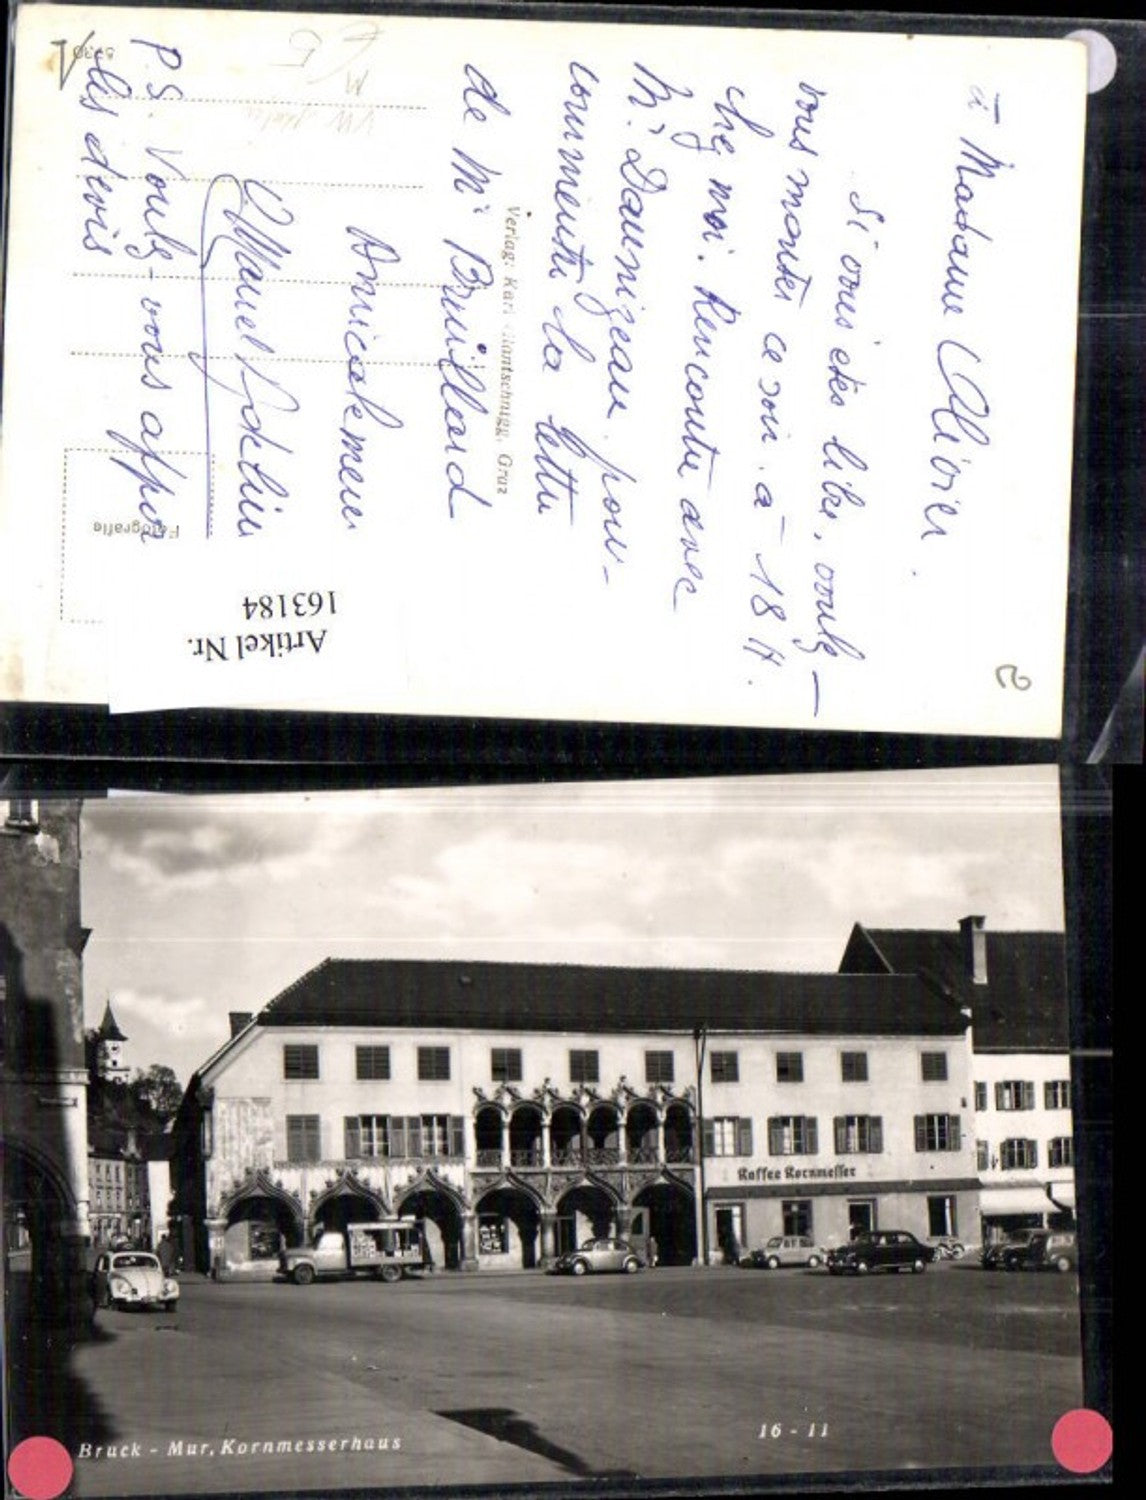 à Madame Olivier.
Si vous êtes libre, voulez-
vous monter ce soir à 18 H.
chez moi. Rencontre avec
Mr Daunizeau pour
commenter la lettre
de Mr Bruilleard
Amicalement
P.S. Voulez-vous apper
les devis
Verlag: Karl Mantschnigg, Graz
5730
Fotografie
Artikel Nr.
163184
2
Kaffee Kornmesser
Bruck - Mur, Kornmesserhaus
16 - 11